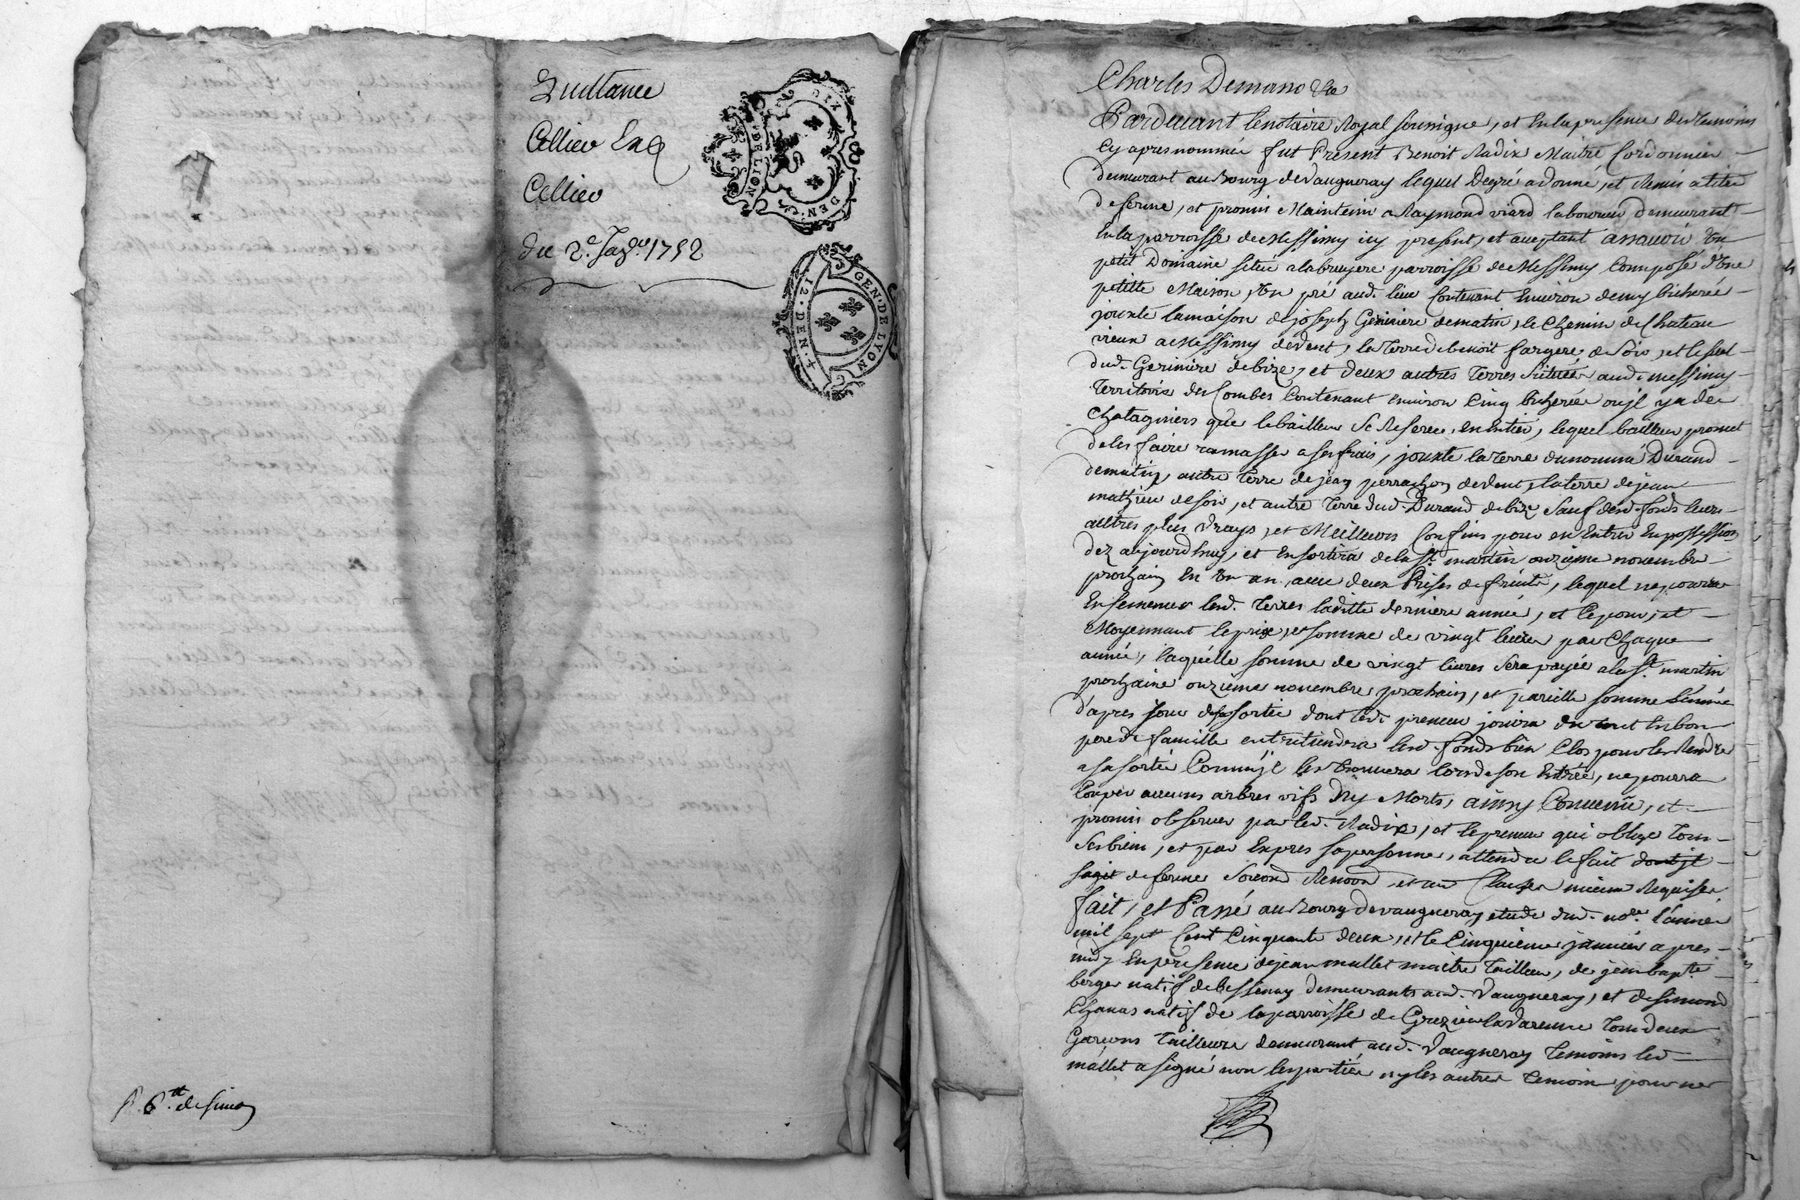 Quittance
Cellier
Cellier
du 2e. 1752
DIX
DEN.
DE LION
GEN. DE LYON
12. DEN. 4
de simon
Charles Demano
Pardevant le notaire Royal soussigné, et en la presence des temoins
cy apres nommes fut Present Benoit Radix Maitre Cordonnier
demeurant au Bourg de Vaugneray lequel Degré a donné, et Remis a titre
de ferme, et promis Maintenir a Raymond viard laboureur demeurant
en la parroisse de Messimy icy present, et aceptant assavoir Un
petit Domaine situé a la bruyere parroisse de Messimy Composé d'Une
petitte Maison, Un pré aud. lieu Contenant Environ demy bicherée
jouxte la maison de joseph Geriniere de matin, le Chemin de Chateau
vieux a Messimy de vent, la Terre de benoit fargere de Soir, et le
dud. Geriniere de bize, et deux autres Terres Scituées aud. messimy
Territoire des Combes Contenant environ Cinq bicherée ou jl y a des
Chatagniers que le bailleur Se Reserve, en Entier, lequel bailleur promet
de les faire ramasser a ses frais, jouxte la Terre du nommé Durand
de matin, autre Terre de jean perrachon de vent, la terre de jean
mathieu de soir, et autre Terre dud. Durand de bize Sauf desd. fonds leurs
aultres plus Vrays, et Meilleurs Confins pour en Entrer En possession
dez aujourdhuy, et En sortira de la St. martin onzieme novembre
prochain En Un an avec deux Prises de fruits, lequel ne poura
Ensemencer lesd. Terres laditte derniere année, et le pour, et
Moyennant le prix, et somme de vingt livres par Chaque
année, laquelle somme de vingt livres Sera payée a la St. martin
prochaine onzieme novembre prochain, et pareille somme l'année
d'apres jour de sa sortie dont led. preneur jouira du tout En bon
pere de famille entretiendra lesd. fonds bien Clos pour les Rendre
a sa sortie Comme jl les trouvera lors de son Entrée, ne pourra
Couper aucuns arbres vifs Ny Morts, ainsy Convenu, et
promis observer par led. Radix, et le preneur qui oblige Tous
Ses biens, et par Expres sa personne, attendu le fait dont jl
sagit de ferme Soumis Renon et aux Clauses mieux Requises
fait, et Passé au Bourg de vaugneray etude dud. nore. l'année
mil sept Cent Cinquante deux, et le Cinquieme janvier apres
midy En presence de jean mallet maitre Tailleur, de jean bapte.
berger natif de bessenay demeurants aud. Vaugneray, et de simond
Chanas natif de la parroisse de Grezieu la Varenne Tous deux
Garçons Tailleurs demeurant aud. Vaugneray Temoins led.
mallet a signé non les parties ny les autres Temoin pour ne